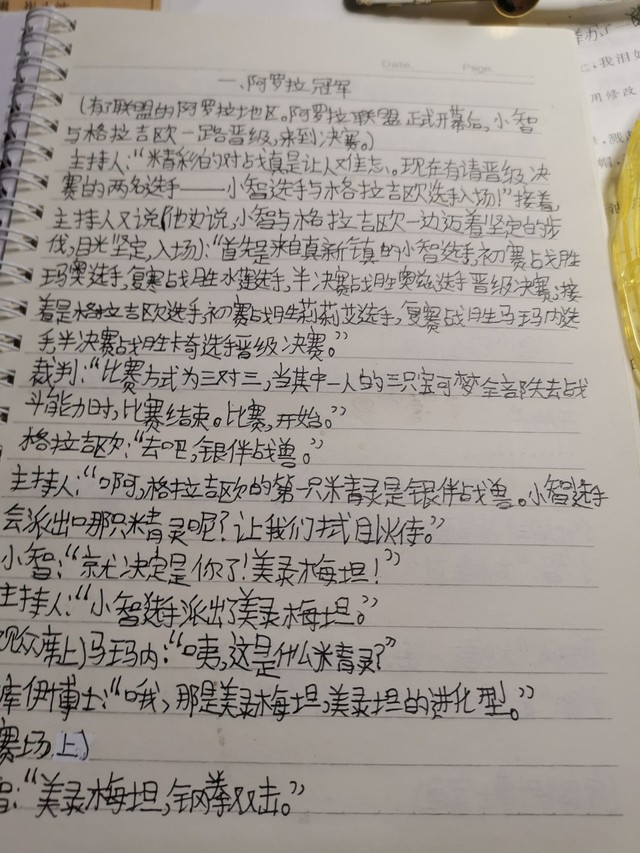 Date. Page.
一、阿罗拉冠军
(有了联盟的阿罗拉地区。阿罗拉联盟正式开幕后,小智
与格拉吉欧一路晋级,来到决赛。)
主持人:“精彩的对战真是让人难忘。现在有请晋级决
赛的两名选手——小智选手与格拉吉欧选手入场!”接着,
主持人又说(他说,小智与格拉吉欧一边迈着坚定的步
伐,目光坚定,入场):“首先是来自真新镇的小智选手,初赛战胜
玛奥选手,复赛战胜水莲选手,半决赛战胜奥兹选手晋级决赛;接
着是格拉吉欧选手,初赛战胜莉莉艾选手,复赛战胜马玛内选
手半决赛战胜卡奇选手晋级决赛。”
裁判:“比赛方式为三对三,当其中一人的三只宝可梦全部失去战
斗能力时,比赛结束。比赛,开始。”
格拉吉欧:“去吧,银伴战兽。”
主持人:“啊,格拉吉欧的第一只精灵是银伴战兽。小智选手
会派出哪只精灵呢?让我们拭目以待。”
小智:“就决定是你了!美录梅坦!”
主持人:“小智选手派出了美录梅坦。”
观众席上)马玛内:“咦,这是什么精灵?”
库伊博士:“哦,那是美录梅坦,美录坦的进化型。”
赛场上)
智:“美录梅坦,钢拳双击。”
修改